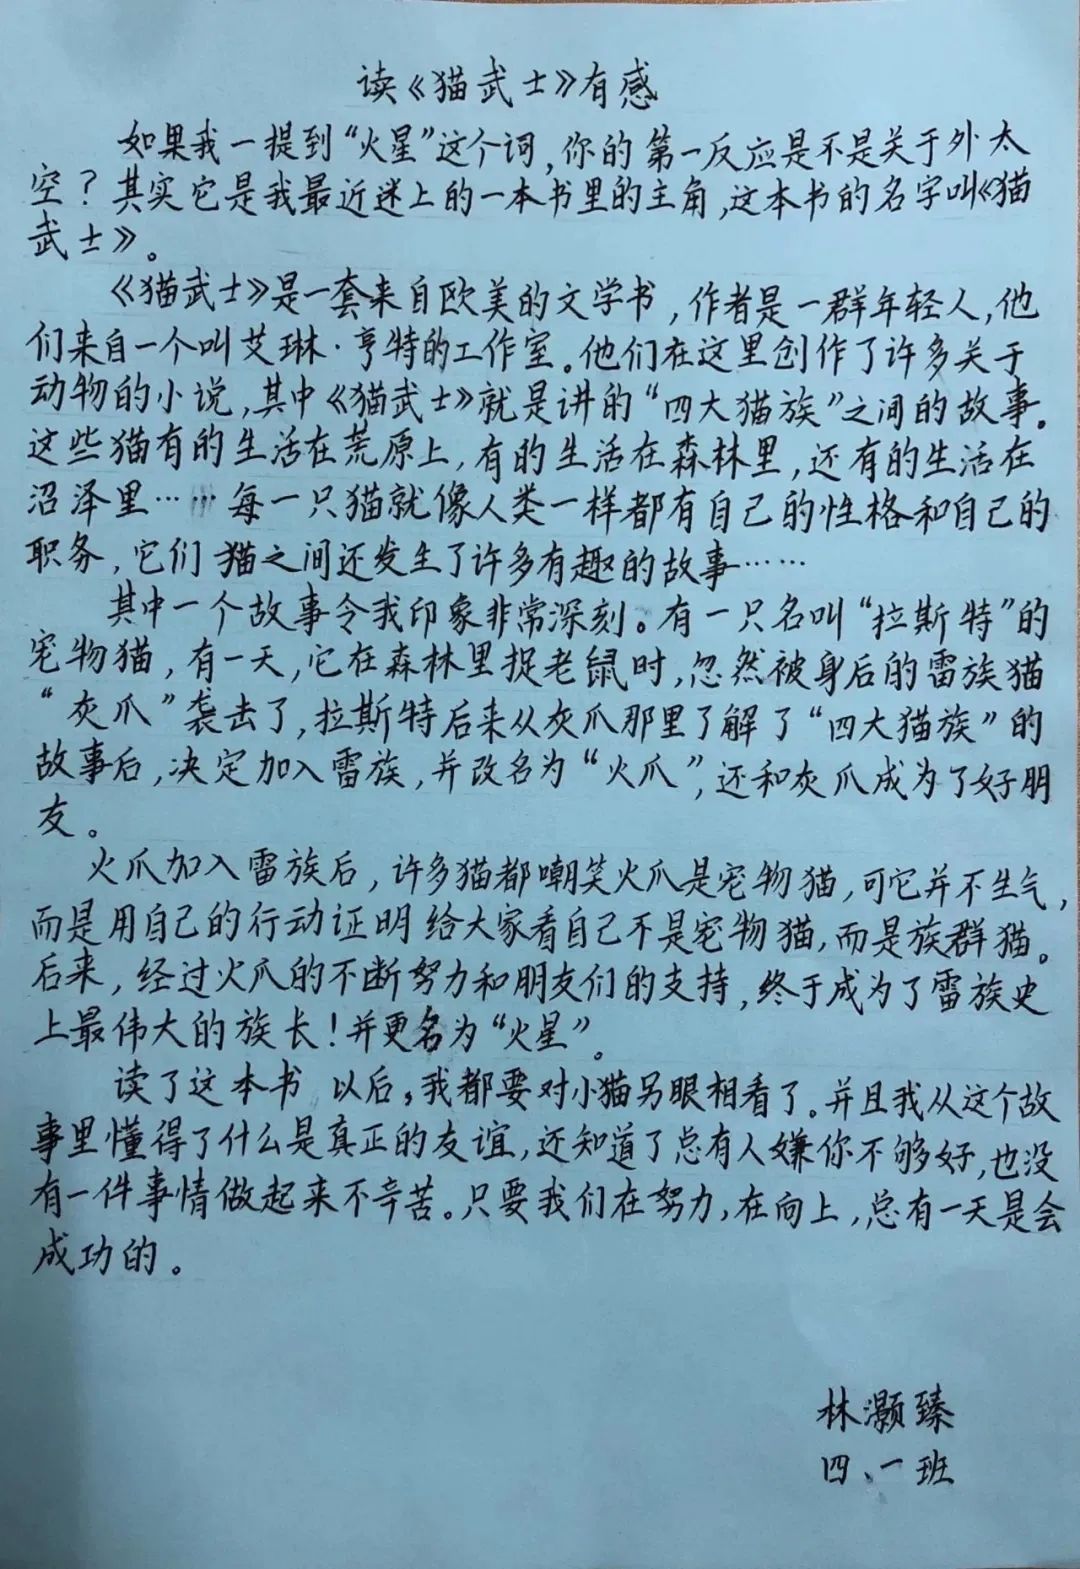 读《猫武士》有感
如果我一提到“火星”这个词,你的第一反应是不是关于外太
空?其实它是我最近迷上的一本书里的主角,这本书的名字叫《猫
武士》。
《猫武士》是一套来自欧美的文学书,作者是一群年轻人,他
们来自一个叫艾琳·亨特的工作室。他们在这里创作了许多关于
动物的小说,其中《猫武士》就是讲的“四大猫族”之间的故事。
这些猫有的生活在荒原上,有的生活在森林里,还有的生活在
沼泽里……每一只猫就像人类一样都有自己的性格和自己的
职务,它们猫之间还发生了许多有趣的故事……
其中一个故事令我印象非常深刻。有一只名叫“拉斯特”的
宠物猫,有一天,它在森林里捉老鼠时,忽然被身后的雷族猫
“灰爪”袭击了,拉斯特后来从灰爪那里了解了“四大猫族”的
故事后,决定加入雷族,并改名为“火爪”,还和灰爪成为了好朋
友。
火爪加入雷族后,许多猫都嘲笑火爪是宠物猫,可它并不生气,
而是用自己的行动证明给大家看自己不是宠物猫,而是族群猫。
后来,经过火爪的不断努力和朋友们的支持,终于成为了雷族史
上最伟大的族长!并更名为“火星”。
读了这本书以后,我都要对小猫另眼相看了。并且我从这个故
事里懂得了什么是真正的友谊,还知道了总有人嫌你不够好,也没
有一件事情做起来不辛苦。只要我们在努力,在向上,总有一天是会
成功的。
林灏臻
四、一班